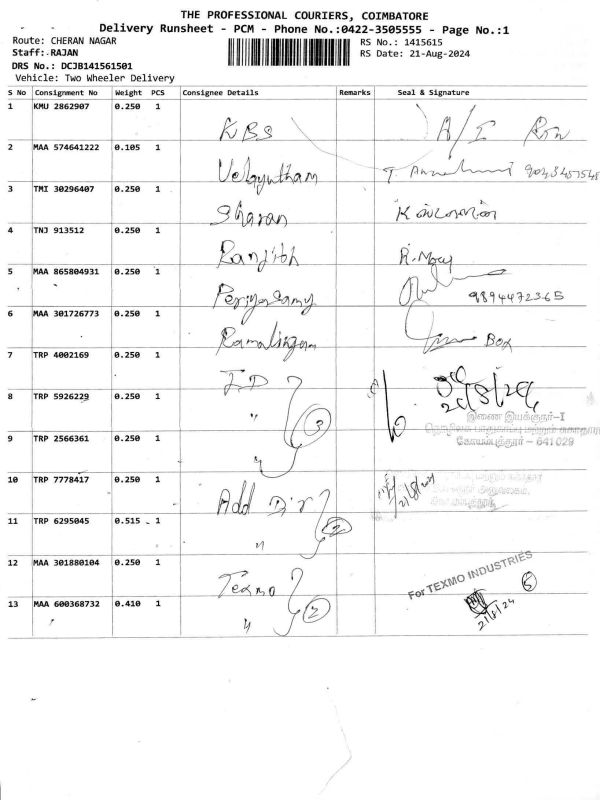 THE PROFESSIONAL COURIERS, COIMBATORE
Delivery Runsheet - PCM - Phone No.:0422-3505555 - Page No.:1
Route: CHERAN NAGAR
RS No.: 1415615
Staff:.RAJAN
RS Date: 21-Aug-2024
DRS No.: DCJB141561501
Vehicle: Two Wheeler Delivery
S No Consignment No Weight PCS Consignee Details Remarks Seal & Signature
1 KMU 2862907 0.250 1 KBS
2 MAA 574641222 0.105 1 Velayutham
3 TMI 30296407 0.250 1 Sharan
4 TNJ 913512 0.250 1 Ranjith
5 MAA 865804931 0.250 1 Periyasamy 9894472365
6 MAA 301726773 0.250 1 Ramalingam Box
7 TRP 4002169 0.250 1 J.D
8 TRP 5926229 0.250 1 " 3
இணை இயக்குநர்-I
9 TRP 2566361 0.250 1 "
கோயம்புத்தூர் - 641 029
10 TRP 7778417 0.250 1 Add Dir 21/8/24
11 TRP 6295045 0.515 1 " 2
12 MAA 301880104 0.250 1 Texmo
For TEXMO INDUSTRIES
13 MAA 600368732 0.410 1 " 2
21/8/24